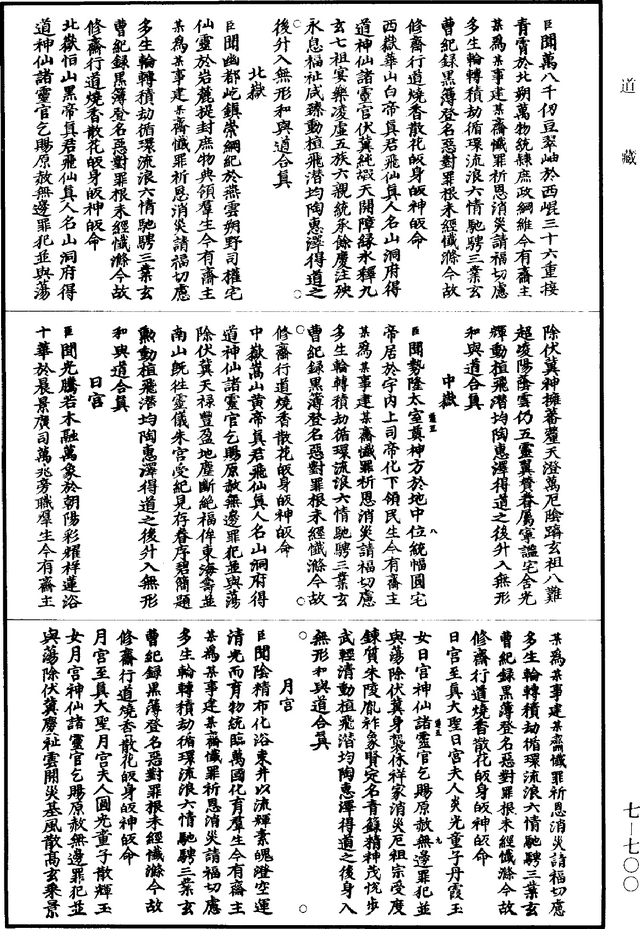 道藏
臣聞萬八千仞亘翠岫於西崐三十六重接
青霄於北朔萬物統隸庶政綱維今有齋主
某爲某事建某齋懺罪祈恩消災請福切慮
多生輪轉積劫循環流浪六情馳騁三業玄
曹紀録黑簿登名惡對罪根未經懺滌今故
修齋行道燒香散花皈身皈神皈命
西嶽華山白帝真君飛仙真人名山洞府得
道神仙諸靈官伏冀純煆天開障緣氷釋九
玄七祖宴樂凌虛五族六親統承餘慶注殃
永息福祉咸臻動植飛潛均陶惠澤得道之
後升入無形和與道合真
北嶽
臣聞幽都屹鎮崇綱紀於燕雲朔野司權宅
仙靈於岩麓提封庶物典領羣生今有齋主
某爲某事建某齋懺罪祈恩消災請福切慮
多生輪轉積劫循環流浪六情馳騁三業玄
曹紀録黑簿登名惡對罪根未經懺滌今故
修齋行道燒香散花皈身皈神皈命
北嶽恒山黑帝真君飛仙真人名山洞府得
道神仙諸靈官乞賜原赦無邊罪犯並與蕩
除伏冀神擁蕃釐天澄萬厄陰躋玄祖八難
超凌陽蔭雲仍五靈翼贊眷屬寧謐宅舍光
輝動植飛潛均陶惠澤得道之後升入無形
和與道合真
中嶽
臣聞勢隆太室奠神方於地中位統幅圓宅
帝居於宇内上司帝化下領民生今有齋主
某爲某事建某齋懺罪祈恩消災請福切慮
多生輪轉積劫循環流浪六情馳騁三業玄
曹紀録黑簿登名惡對罪根未經懺滌今故
修齋行道燒香散花皈身皈神皈命
中嶽嵩山黄帝真君飛仙真人名山洞府得
道神仙諸靈官乞賜原赦無邊罪犯並與蕩
除伏冀天禄豐盈地塵斷絶福侔東海壽並
南山既往靈儀朱宫受紀見存眷序碧簡題
勲動植飛潛均陶惠澤得道之後升入無形
和與道合真
日宫
臣聞光騰若木融萬象於朝陽彩耀祥蓮浴
十華於晨景廣司萬兆旁職羣生今有齋主
某爲某事建某齋懺罪祈恩消災請福切慮
多生輪轉積劫循環流浪六情馳騁三業玄
曹紀録黑簿登名惡對罪根未經懺滌今故
修齋行道燒香散花皈身皈神皈命
日宫至真大聖日宫夫人炎光童子丹霞玉
女日宫神仙諸靈官乞賜原赦無邊罪犯並
與蕩除伏冀身襲休祥家消災厄祖宗受度
鍊質朱陵胤祚象賢定名青籙精神茂悦步
武輕清動植飛潛均陶惠澤得道之後身入
無形和與道合真
月宫
臣聞陰精布化浴東井以流輝素魄澄空運
清光而育物統臨萬國化育羣生今有齋主
某爲某事建某齋懺罪祈恩消災請福切慮
多生輪轉積劫循環流浪六情馳騁三業玄
曹紀録黑簿登名惡對罪根未經懺滌今故
修齋行道燒香散花皈身皈神皈命
月宫至真大聖月宫夫人圓光童子散輝玉
女月宫神仙諸靈官乞賜原赦無邊罪犯並
與蕩除伏冀慶祉雲開災基風散高玄乘景
七—七〇〇